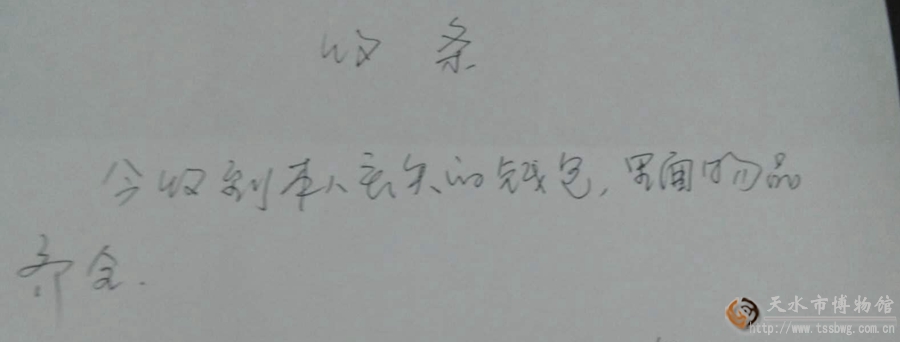 收 条
今收到本人丢失的钱包,里面物品
齐全.
天水市博物馆
http://www.tssbwg.com.cn